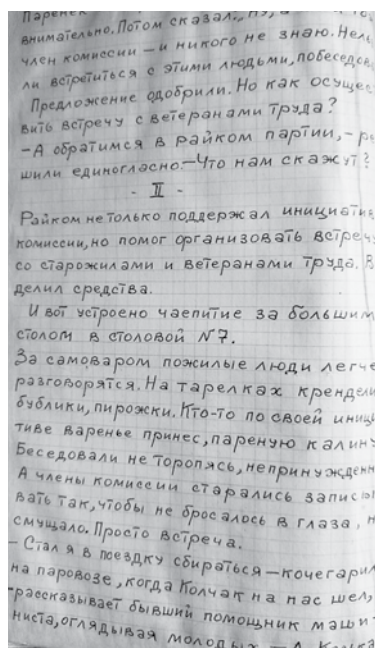 Паренек
внимательно. Потом сказал.
член комиссии – и никого не знаю. Нель
ли встретиться с этими людьми, побеседов
Предложение одобрили. Но как осущес
вить встречу с ветеранами труда?
– А обратимся в райком партии, – ре
шили единогласно. – Что нам скажут?
- II -
Райком не только поддержал инициатив
комиссии, но помог организовать встреч
со старожилами и ветеранами труда. В
делил средства.
И вот устроено чаепитие за большим
столом в столовой №7.
За самоваром пожилые люди легче
разговорятся. На тарелках крендели
бублики, пирожки. Кто-то по своей иници
тиве варенье принес, пареную калину
Беседовали не торопясь, непринужденн
А члены комиссии старались записы
вать так, чтобы не бросалось в глаза, н
смущало. Просто встреча.
– Стал я в поездку сбираться – кочегарил
на паровозе, когда Колчак на нас шел,
- рассказывает бывший помощник маши
ниста, оглядывая молодых